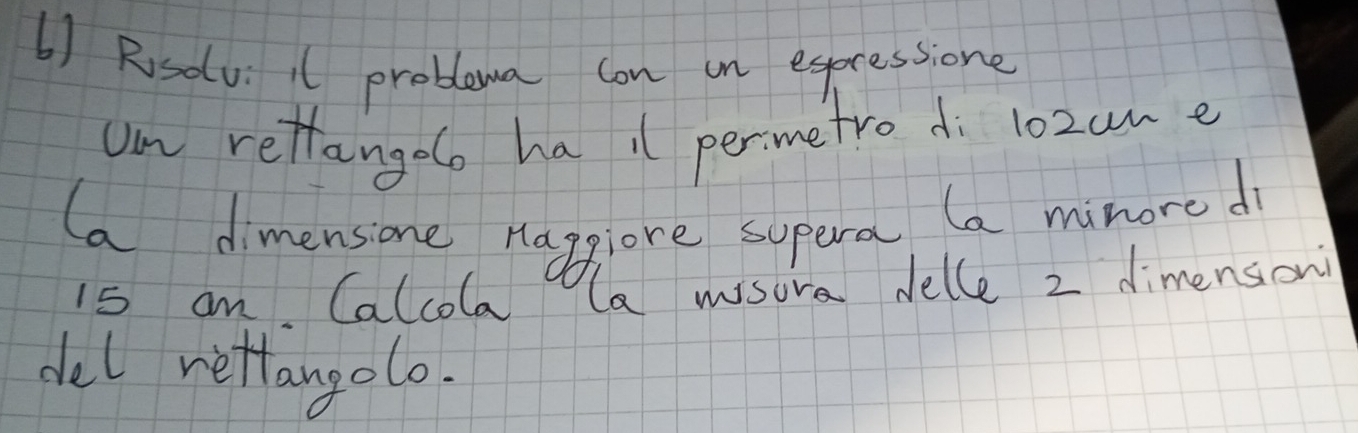 b) Risolvi il problema con un espressione
Un rettangolo ha il perimetro di 102cm e
la dimensione Maggiore supera la minore di
15 cm. Calcola la misura delle 2 dimensioni
del rettangolo.